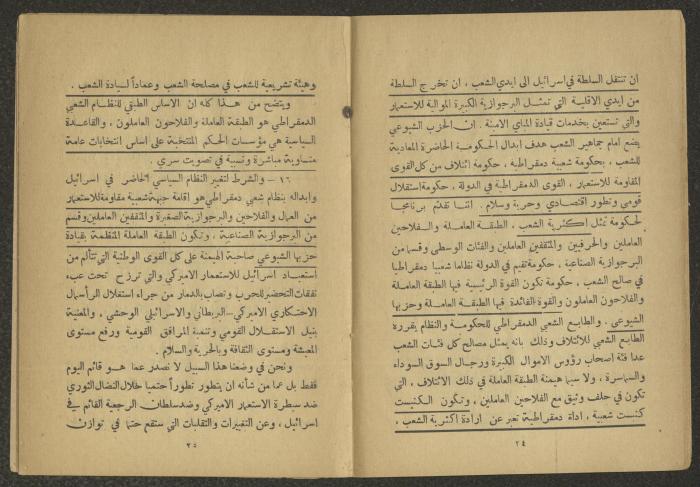 ان تنتقل السلطة في اسرائيل الى ايدي الشعب ، ان تخرج السلطة
من ايدي الاقلية التي تمثل البرجوازية الكبيرة الموالية للاستعمار
والتي تستعين بخدمات قيادة المباي الامينة . ان الحزب الشيوعي
يضع امام جماهير الشعب هدف ابدال الحكومة الحاضرة المعادية
للشعب ، بحكومة شعبية دمقراطية ، حكومة ائتلاف من كل القوى
المقاومة للاستعمار ، القوى الدمقراطية في الدولة ، حكومة استقلال
قومي وتطور اقتصادي وحرية وسلام . اننا نقدم برنامجا
لحكومة تمثل اكثرية الشعب ، الطبقة العاملة والفلاحين
العاملين والحرفيين والمثقفين العاملين والفئات الوسطى وقسما من
البرجوازية الصناعية ، حكومة تقيم في الدولة نظاما شعبيا دمقراطيا
في صالح الشعب ، حكومة تكون القوة الرئيسية فيها الطبقة العاملة
والفلاحون العاملون والقوة القائدة فيها الطبقة العاملة وحزبها
الشيوعي . والطابع الشعبي الدمقراطي للحكومة والنظام يقرره
الطابع الشعبي للائتلاف وذلك بانه يمثل مصالح كل فئات الشعب
عدا فئة اصحاب رؤوس الاموال الكبيرة ورجال السوق السوداء
والسماسرة ، ولا سيما هيمنة الطبقة العاملة في ذلك الائتلاف ، التي
تكون في حلف وثيق مع الفلاحين العاملين ، وتكون الكنيست
كنيست شعبية ، اداة دمقراطية تعبر عن ارادة اكثرية الشعب ،
٢٤
وهيئة تشريعية للشعب في مصلحة الشعب وعماداً لسيادة الشعب .
ويتضح من هذا كله ان الاساس الطبقي للنظام الشعبي
الدمقراطي هو الطبقة العاملة والفلاحون العاملون ، والقاعدة
السياسية هي مؤسسات الحكم المنتخبة على اساس انتخابات عامة
متساوية مباشرة ونسبية في تصويت سري .
١٦ – والشرط لتغيير النظام السياسي الحاضر في اسرائيل
وابداله بنظام شعبي دمقراطي هو اقامة جبهة شعبية مقاومة للاستعمار
من العمال والفلاحين والبرجوازية الصغيرة والمثقفين العاملين وقسم
من البرجوازية الصناعية ، وتكون الطبقة العاملة المنظمة بقيادة
حزبها الشيوعي صاحبة الهيمنة على كل القوى الوطنية التي تتألم من
استعباد اسرائيل للاستعمار الاميركي والتي ترزح تحت عبء
نفقات التحضير للحرب وتصاب بالدمار من جراء استغلال الرأسمال
الاحتكاري الاميركي – البريطاني والاسرائيلي الوحشي ، والمعنية
بنيل الاستقلال القومي وتنمية المرافق القومية ورفع مستوى
المعيشة ومستوى الثقافة وبالحرية والسلام .
ونحن في وضعنا هذا السبيل لا نصدر عما هو قائم اليوم
فقط بل عما من شأنه ان يتطور تطوراً حتميا خلال النضال الثوري
ضد سيطرة الاستعمار الاميركي وضد سلطان الرجعية القائم في
اسرائيل ، وعن التغييرات والتقلبات التي ستقع حتما في توازن
٢٥